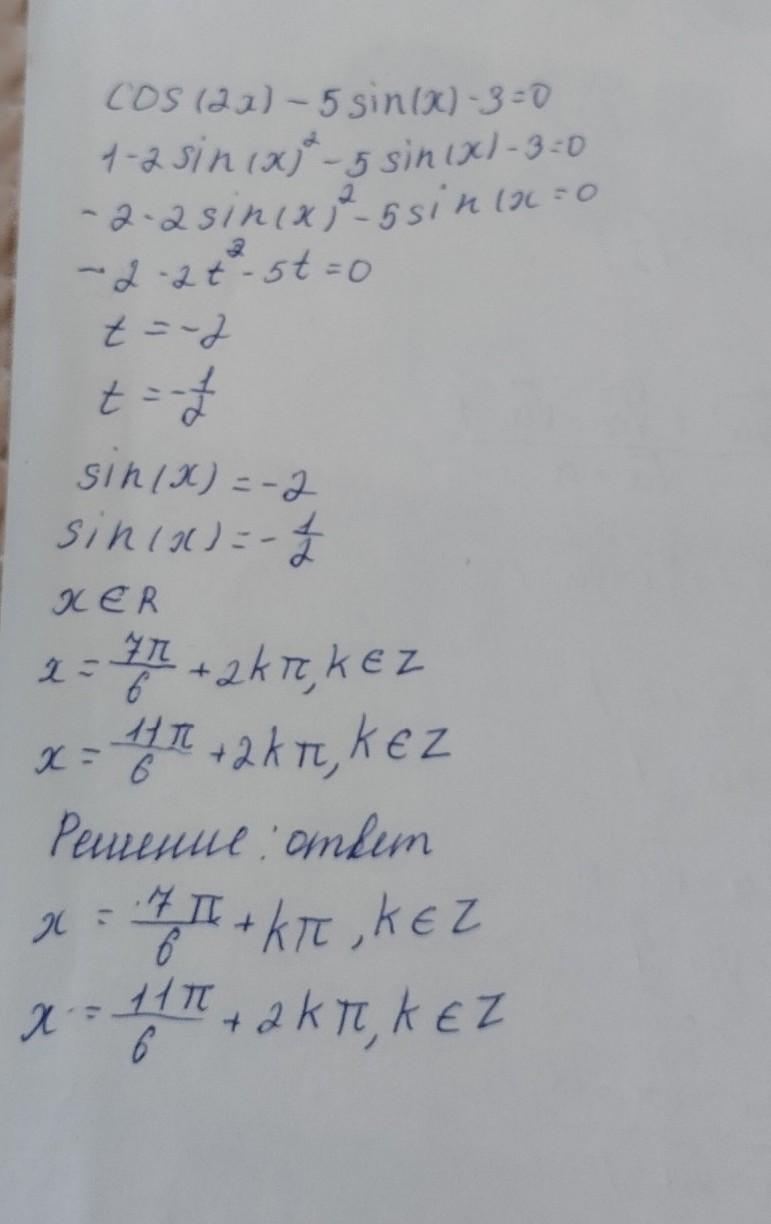 cos(2x) - 5sin(x) - 3=0
1-2sin(x)² - 5sin(x) - 3=0
-2-2sin(x)² - 5sin(x=0
-2-2t² - 5t=0
t=-2
t=-1/2
sin(x)=-2
sin(x)=-1/2
x∈R
x=7π/6+2kπ,k∈Z
x=11π/6+2kπ,k∈Z
Решение: ответ
x=7π/6+kπ,k∈Z
x=11π/6+2kπ,k∈Z